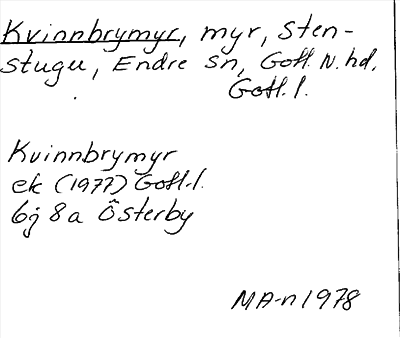 Kvinnbrymyr, myr, Sten-
stugu, Endre sn, Gotl. N. hd.
Gotl. l.
Kvinnbrymyr
ek (1977) Gotl. l.
6j 8a Österby
MA-n 1978